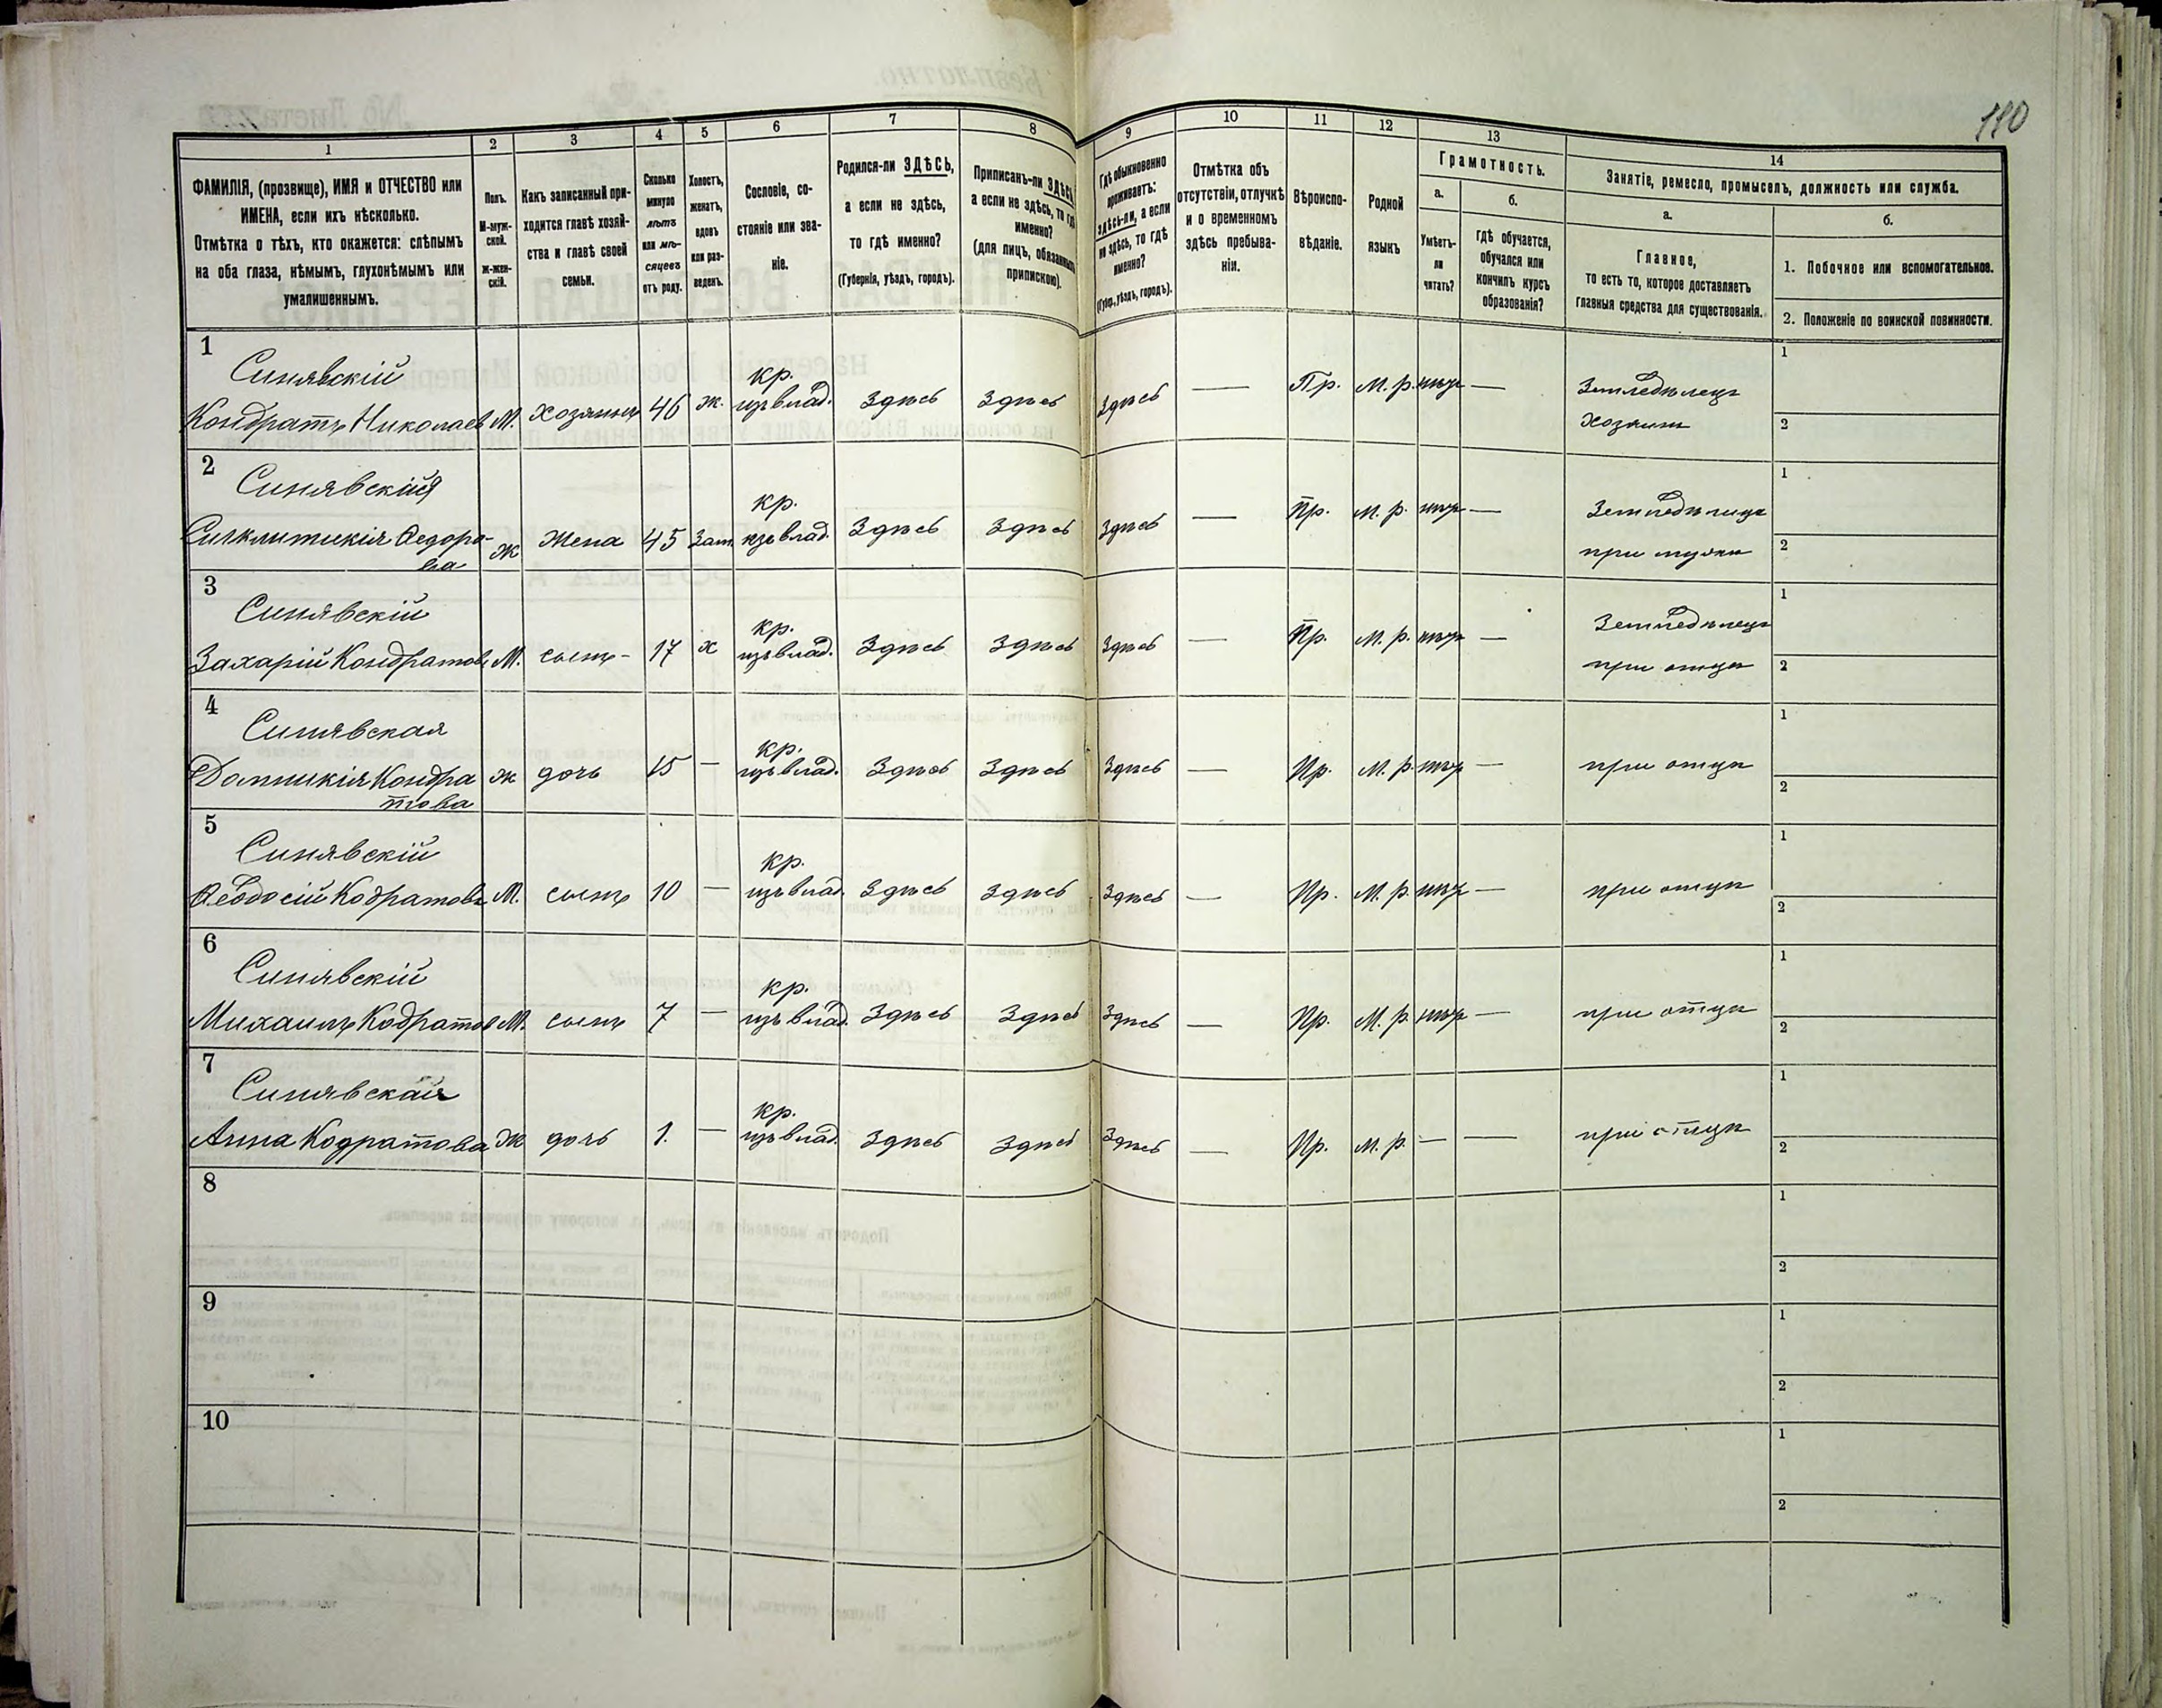 180
1 2 3 4 5 6 7 8 9 10 11 12 13 14
ФАМИЛІЯ, (прозвище), ИМЯ и ОТЧЕСТВО или
ИМЕНА, если ихъ нѣсколько.
Отмѣтка о тѣхъ, кто окажется: слѣпымъ
на оба глаза, нѣмымъ, глухонѣмымъ или
умалишеннымъ.
Полъ.
М-муж-
ской.
ж-жен-
скій.
Какъ записанный при-
ходится главѣ хозяй-
ства и главѣ своей
семьи.
Сколько
минуло
лѣтъ
или мѣ-
сяцевъ
отъ роду.
Холостъ,
женатъ,
вдовъ
или раз-
веденъ.
Сословіе, со-
стояніе или зва-
ніе.
Родился-ли ЗДѢСЬ,
а если не здѣсь,
то гдѣ именно?
(Губернія, уѣздъ, городъ).
Приписанъ-ли ЗДѢСЬ,
а если не здѣсь, то гдѣ
именно?
(для лицъ, обязанныхъ
припискою).
Гдѣ обыкновенно
проживаетъ:
здѣсь-ли, а если
не здѣсь, то гдѣ
именно?
(Губер., уѣздъ, городъ).
Отмѣтка объ
отсутствіи, отлучкѣ
и о временномъ
здѣсь пребыва-
ніи.
Вѣроиспо-
вѣданіе.
Родной
языкъ
Грамотность.
а.
Умѣетъ-
ли
читать?
б.
гдѣ обучается,
обучался или
кончилъ курсъ
образованія?
Занятіе, ремесло, промыселъ, должность или служба.
а.
Главное,
то есть то, которое доставляетъ
главныя средства для существованія.
б.
1. Побочное или вспомогательное.
2. Положеніе по воинской повинности.
1
Синявскій кр.
Кондратъ Николаев М. хозяинъ 46 ж. изъ влад. Здѣсь Здѣсь Здѣсь — Пр. М. р. нѣтъ — Земледѣлецъ 1
хозяинъ 2
2
Синявскія кр.
Синклитикія Ѳедоро- Ж Жена 45 Зам. изъ влад. Здѣсь Здѣсь Здѣсь — Пр. М. р. нѣтъ — Земледѣлица 1
ва при мужѣ 2
3
Синявскій кр.
Захарій Кондратовъ М. сынъ - 17 х изъ влад. Здѣсь Здѣсь Здѣсь — Пр. М. р. нѣтъ — Земледѣлецъ 1
при отцѣ 2
4
Синявская кр.
Домникія Кондра ж дочь 15 — изъ влад. Здѣсь Здѣсь Здѣсь — Пр. М. р. нѣтъ — при отцѣ 1
това 2
5
Синявскій кр.
Ѳеодосій Кодратовъ М. сынъ 10 — изъ влад. Здѣсь Здѣсь Здѣсь — Пр. М. р. нѣтъ — при отцѣ 1
2
6
Синявскій кр.
Михаилъ Кодратов М. сынъ 7 — изъ влад. Здѣсь Здѣсь Здѣсь — Пр. М. р. нѣтъ — при отцѣ 1
2
7
Синявская кр.
Анна Кодратова Ж дочь 1. — изъ влад. Здѣсь Здѣсь Здѣсь — Пр. М. р. — — при отцѣ 1
2
8 1
2
9 1
2
10 1
2